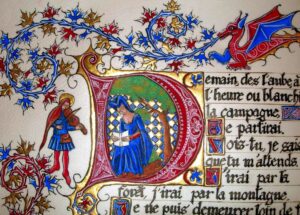 Demain, des l'aube a
l'heure ou blanchi
la campagne,
Je partirai.
Vois-tu, je sais
que tu m'attends.
J'irai par la
forêt, j'irai par la montagne.
Je ne puis demeurer loin de